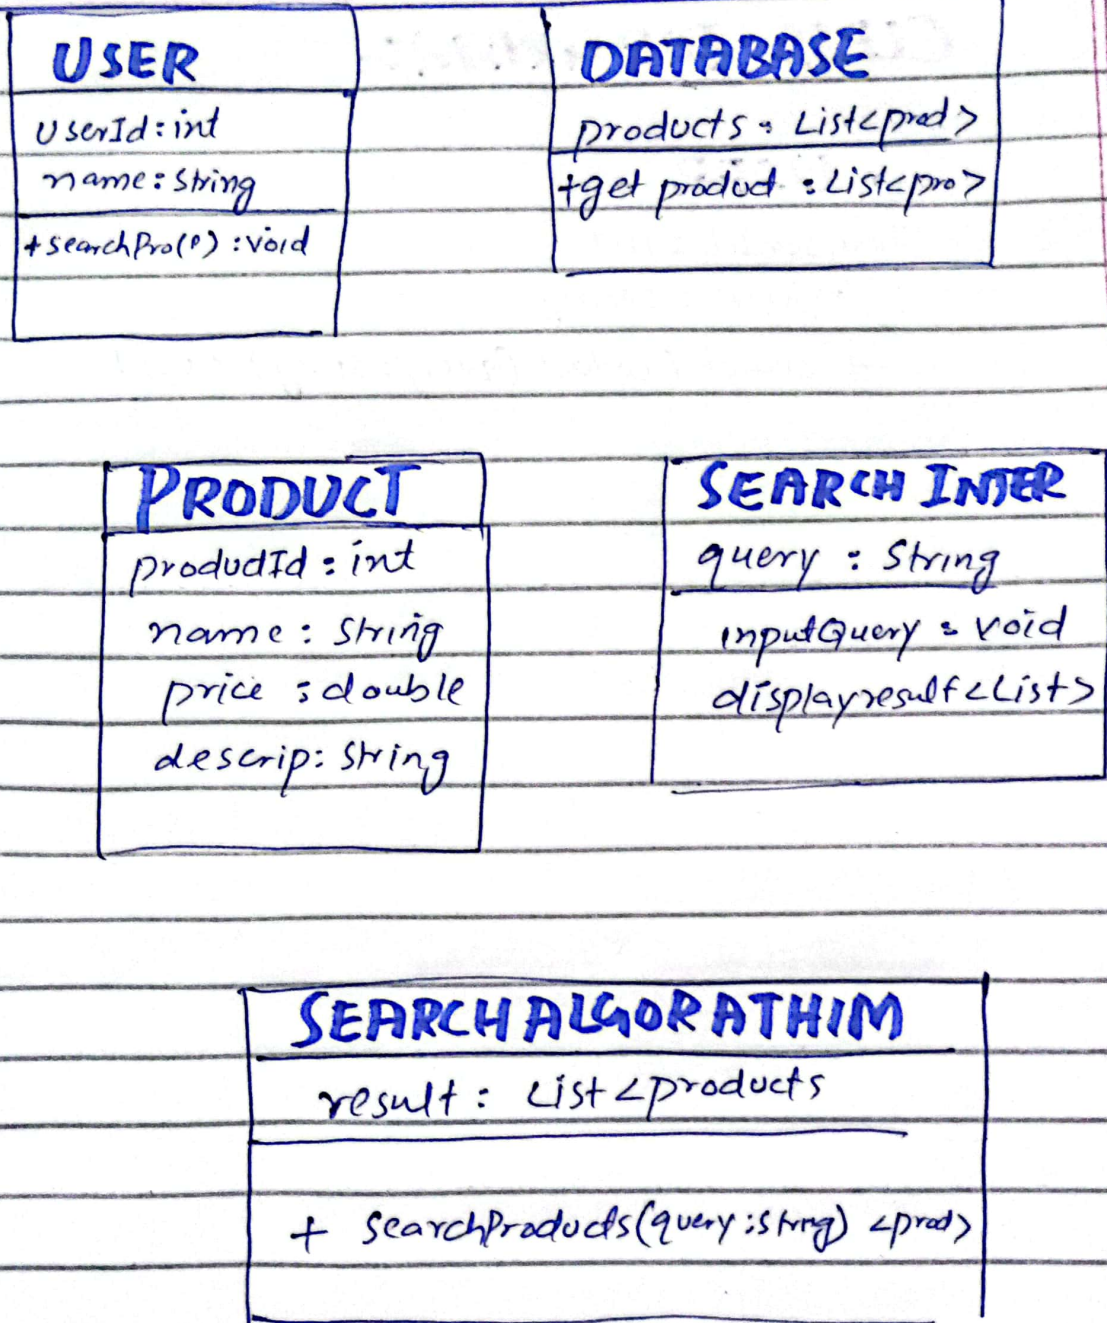 USER
UserId: int
name: String
+ searchPro(P) : void
DATABASE
products : List<prod>
+get product : List<pro>
PRODUCT
productId : int
name : String
price : double
descrip: String
SEARCH INTER
query : String
inputQuery : void
displayresult<List>
SEARCH ALGORATHIM
result : List<products
+ searchProducts(query :string) <prod>